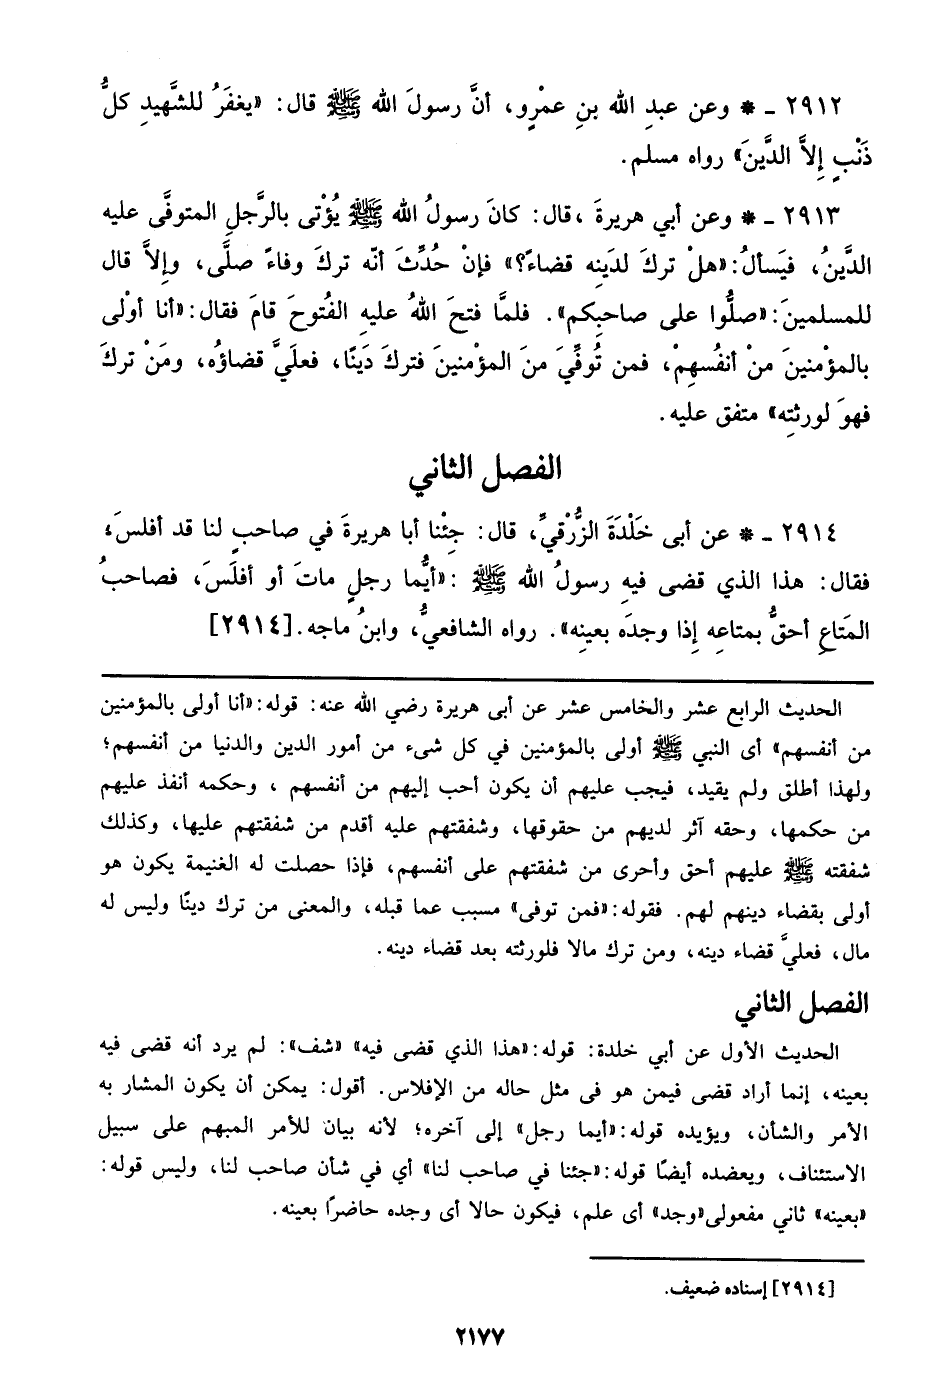 ٢٩١٢ ـ * وعن عبدِ الله بنِ عمْرٍو، أنَّ رسولَ الله ﷺ قال: «يغفَرُ للشَّهيدِ كلُّ
ذَنْبٍ إِلاَّ الدَّينَ» رواه مسلم.
٢٩١٣ ـ * وعن أبي هريرةَ ،قال: كانَ رسولُ الله ﷺ يُؤْتى بالرَّجلِ المتوفَّى عليه
الدَّينُ، فيَسألُ:«هلْ تركَ لدَينِه قضاءً؟» فإنْ حُدِّثَ أنّه تركَ وفاءً صلَّى، وإلاَّ قال
للمسلمينَ:«صلُّوا على صاحبِكم». فلمَّا فتحَ اللهُ عليهِ الفُتوحَ قامَ فقال:«أنا أوْلى
بالمؤْمنينَ منْ أنفُسِهِمْ، فمن تُوفِّيَ منَ المؤْمنينَ فتركَ دَينًا، فعلَيَّ قضاؤُه، ومَنْ تركَ
فهوَ لورثتِه» متفق عليه.
الفصل الثاني
٢٩١٤ ـ * عن أبى خَلْدَةَ الزُّرْقيِّ، قال: جِئْنا أبا هريرةَ في صاحبٍ لنا قد أفلسَ،
فقال: هذا الذي قضى فيهِ رسولُ الله ﷺ :«أيُّما رجلٍ ماتَ أو أفلَسَ، فصاحبُ
المَتاعِ أحقُّ بمتاعِه إِذا وجدَه بعينِه». رواه الشافعيُّ، وابنُ ماجه.[٢٩١٤]
الحديث الرابع عشر والخامس عشر عن أبى هريرة رضي الله عنه: قوله:«أنا أولى بالمؤمنين
من أنفسهم» أى النبي ﷺ أولى بالمؤمنين في كل شىء من أمور الدين والدنيا من أنفسهم؛
ولهذا أطلق ولم يقيد، فيجب عليهم أن يكون أحب إليهم من أنفسهم ، وحكمه أنفذ عليهم
من حكمها، وحقه آثر لديهم من حقوقها، وشفقتهم عليه أقدم من شفقتهم عليها، وكذلك
شفقته ﷺ عليهم أحق وأحرى من شفقتهم على أنفسهم، فإذا حصلت له الغنيمة يكون هو
أولى بقضاء دينهم لهم. فقوله:«فمن توفى» مسبب عما قبله، والمعنى من ترك دينًا وليس له
مال، فعليَّ قضاء دينه، ومن ترك مالا فلورثته بعد قضاء دينه.
الفصل الثاني
الحديث الأول عن أبي خلدة: قوله:«هذا الذي قضى فيه» «شف»: لم يرد أنه قضى فيه
بعينه، إنما أراد قضى فيمن هو فى مثل حاله من الإفلاس. أقول: يمكن أن يكون المشار به
الأمر والشأن، ويؤيده قوله:«أيما رجل» إلى آخره؛ لأنه بيان للأمر المبهم على سبيل
الاستئناف، ويعضده أيضًا قوله:«جئنا في صاحب لنا» أي في شأن صاحب لنا، وليس قوله:
«بعينه» ثاني مفعولى«وجد» أى علم، فيكون حالا أى وجده حاضرًا بعينه.
[٢٩١٤] إسناده ضعيف.
٢١٧٧